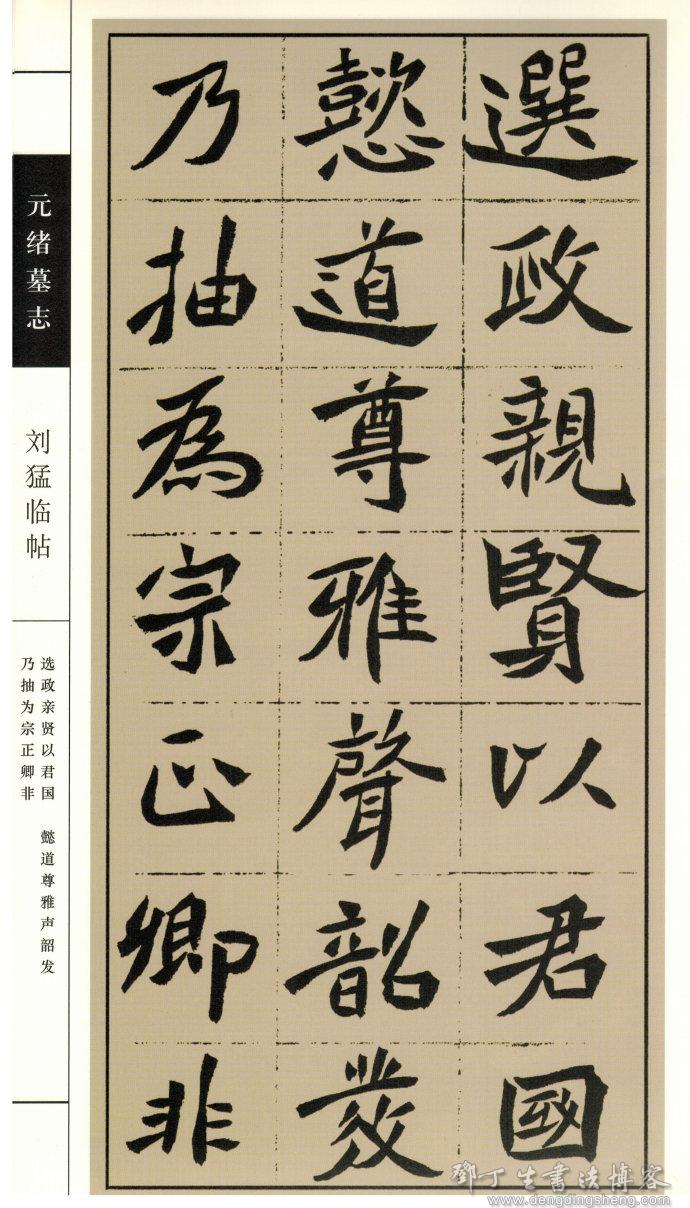 選政親賢以君國
懿道尊雅聲韶發
乃抽為宗正卿非
元绪墓志
刘猛临帖
选政亲贤以君国 懿道尊雅声韶发
乃抽为宗正卿非
鄧丁生書法博客
www.dengdingsheng.com